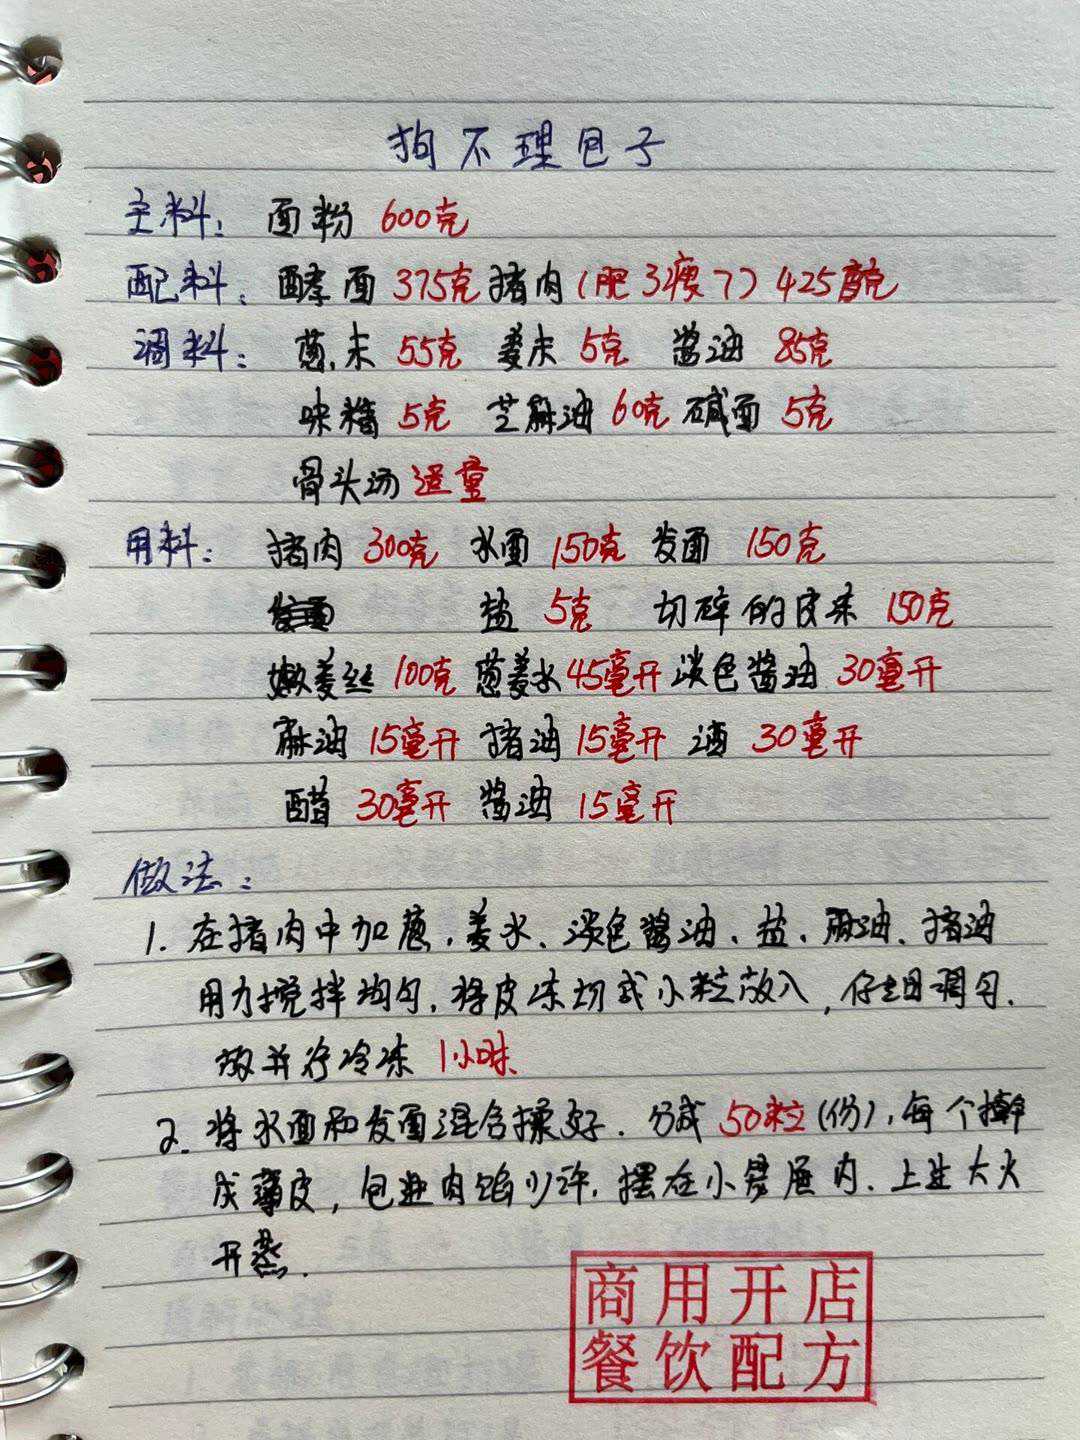 狗不理包子
主料: 面粉 600克
配料: 酵面 375克 猪肉(肥3瘦7) 425克
调料: 葱末 55克 姜末 5克 酱油 85克
味精 5克 芝麻油 60克 碱面 5克
骨头汤 适量
用料: 猪肉 300克 水面 150克 发面 150克
盐 5克 切碎的皮冻 150克
嫩姜丝 100克 葱姜水 45毫升 淡色酱油 30毫升
麻油 15毫升 猪油 15毫升 酒 30毫升
醋 30毫升 酱油 15毫升
做法:
1. 在猪肉中加葱、姜水、淡色酱油、盐、麻油、猪油
用力搅拌均匀, 将皮冻切成小粒放入, 仔细调匀.
放并行冷冻 1小时.
2. 将水面和发面混合揉好. 分成 50粒(份), 每个擀
成薄皮, 包进肉馅少许, 摆在小笼屉内. 上连大火
开蒸.
商用开店
餐饮配方